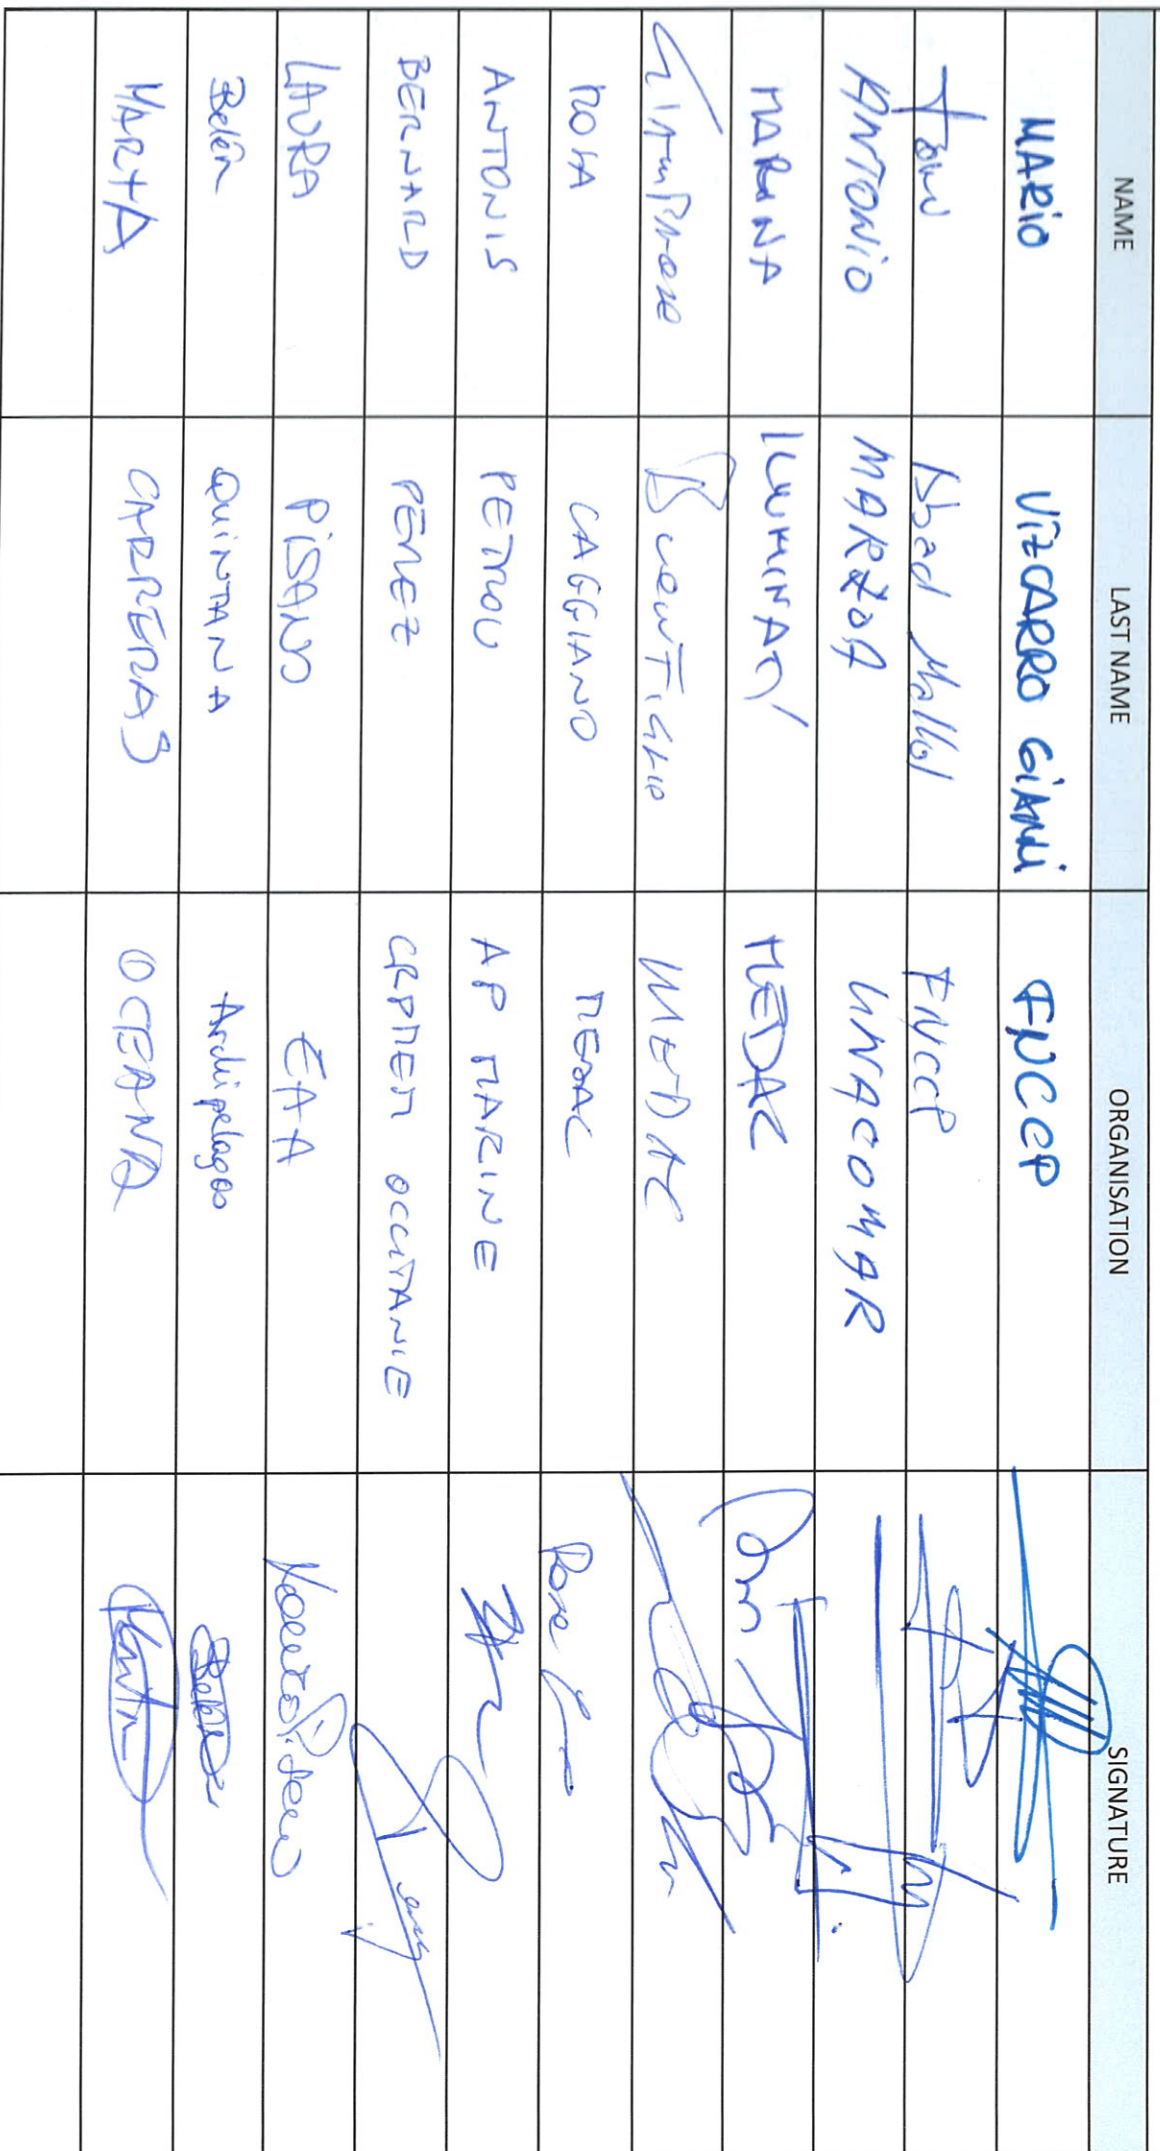 NAME LAST NAME ORGANISATION SIGNATURE
MARIO VIZCARRO GIANNI FNCCP
Joan Abad Mallol FNCCP
ANTONIO MARZOA UNACOMAR
MARINA ILLUMINATI MEDAC
Giampaolo Buonfiglio MEDAC
ROSA CAGGIANO MEDAC Rosa
ANTONIS PETROU AP MARINE
BERNARD PEREZ CRPMEM OCCITANIE
LAURA PISANO EAA Laura Pisano
Belén QUINTANA Archipelagos Belén
MARTA CARRERAS OCEANA Marta